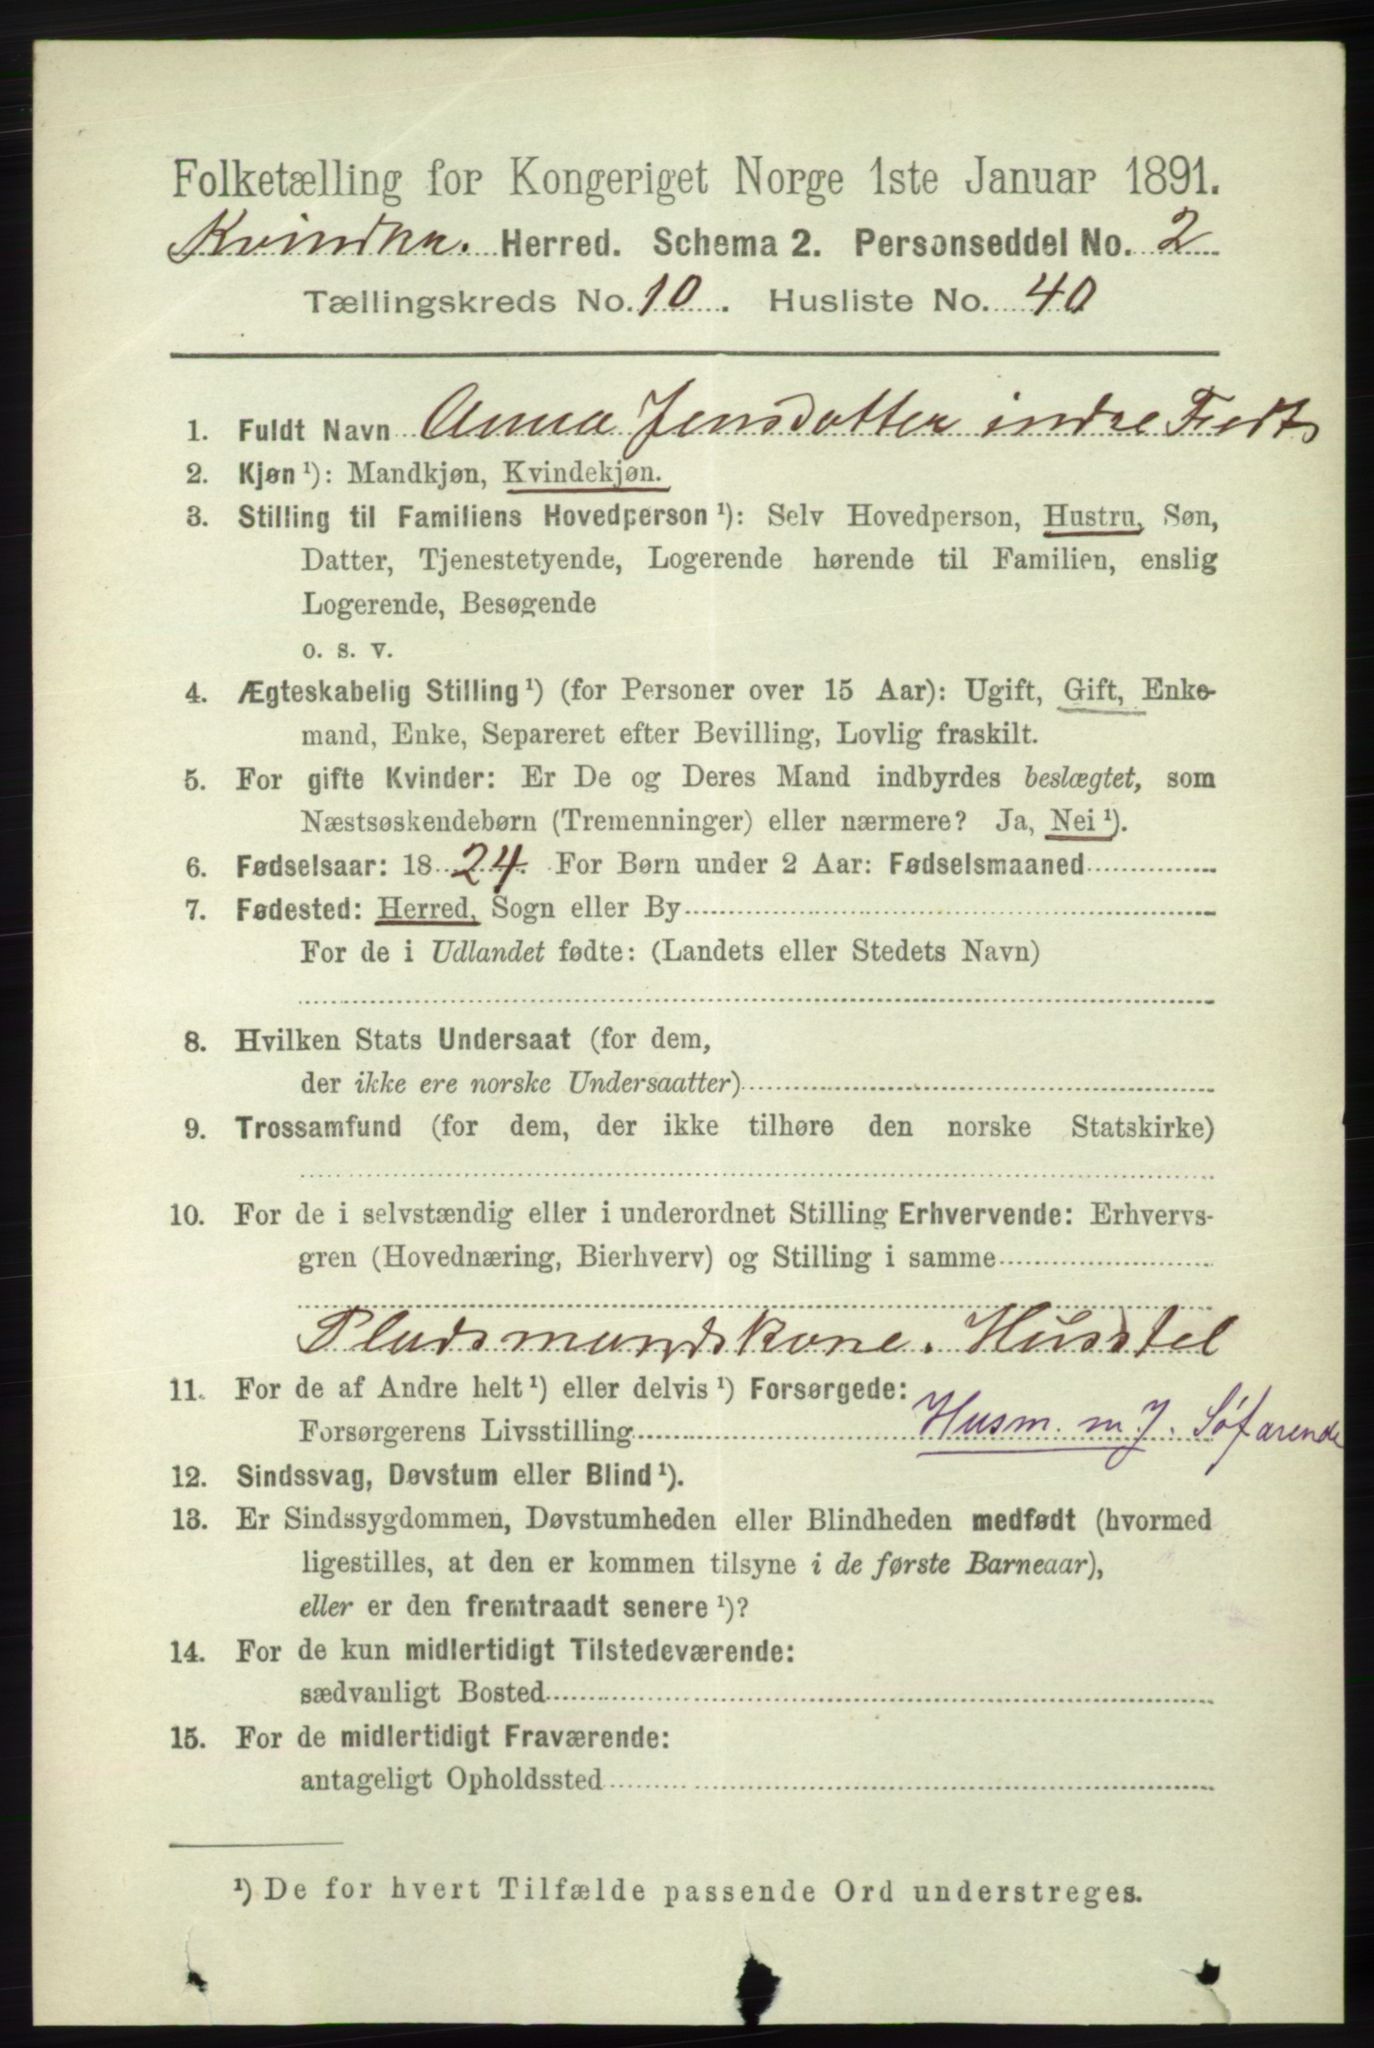 Folketælling for Kongeriget Norge 1ste Januar 1891.
Kvindhr. Herred. Schema 2. Personseddel No. 2
Tællingskreds No. 10. Husliste No. 40
1. Fuldt Navn Anna Jensdatter indre Fedt
2. Kjøn ¹): Mandkjøn, Kvindekjøn.
3. Stilling til Familiens Hovedperson ¹): Selv Hovedperson, Hustru, Søn,
Datter, Tjenestetyende, Logerende hørende til Familien, enslig
Logerende, Besøgende
o. s. v.
4. Ægteskabelig Stilling ¹) (for Personer over 15 Aar): Ugift, Gift, Enke-
mand, Enke, Separeret efter Bevilling, Lovlig fraskilt.
5. For gifte Kvinder: Er De og Deres Mand indbyrdes beslægtet, som
Næstsøskendebørn (Tremenninger) eller nærmere? Ja, Nei ¹).
6. Fødselsaar: 1824. For Børn under 2 Aar: Fødselsmaaned
7. Fødested: Herred, Sogn eller By
For de i Udlandet fødte: (Landets eller Stedets Navn)
8. Hvilken Stats Undersaat (for dem,
der ikke ere norske Undersaatter)
9. Trossamfund (for dem, der ikke tilhøre den norske Statskirke)
10. For de i selvstændig eller i underordnet Stilling Erhvervende: Erhvervs-
gren (Hovednæring, Bierhverv) og Stilling i samme
Pladsmandskone. Husstel
11. For de af Andre helt ¹) eller delvis ¹) Forsørgede:
Forsørgerens Livsstilling Husm. m J. Søfarende
12. Sindssvag, Døvstum eller Blind ¹).
13. Er Sindssygdommen, Døvstumheden eller Blindheden medfødt (hvormed
ligestilles, at den er kommen tilsyne i de første Barneaar),
eller er den fremtraadt senere ¹)?
14. For de kun midlertidigt Tilstedeværende:
sædvanligt Bosted
15. For de midlertidigt Fraværende:
antageligt Opholdssted
¹) De for hvert Tilfælde passende Ord understreges.